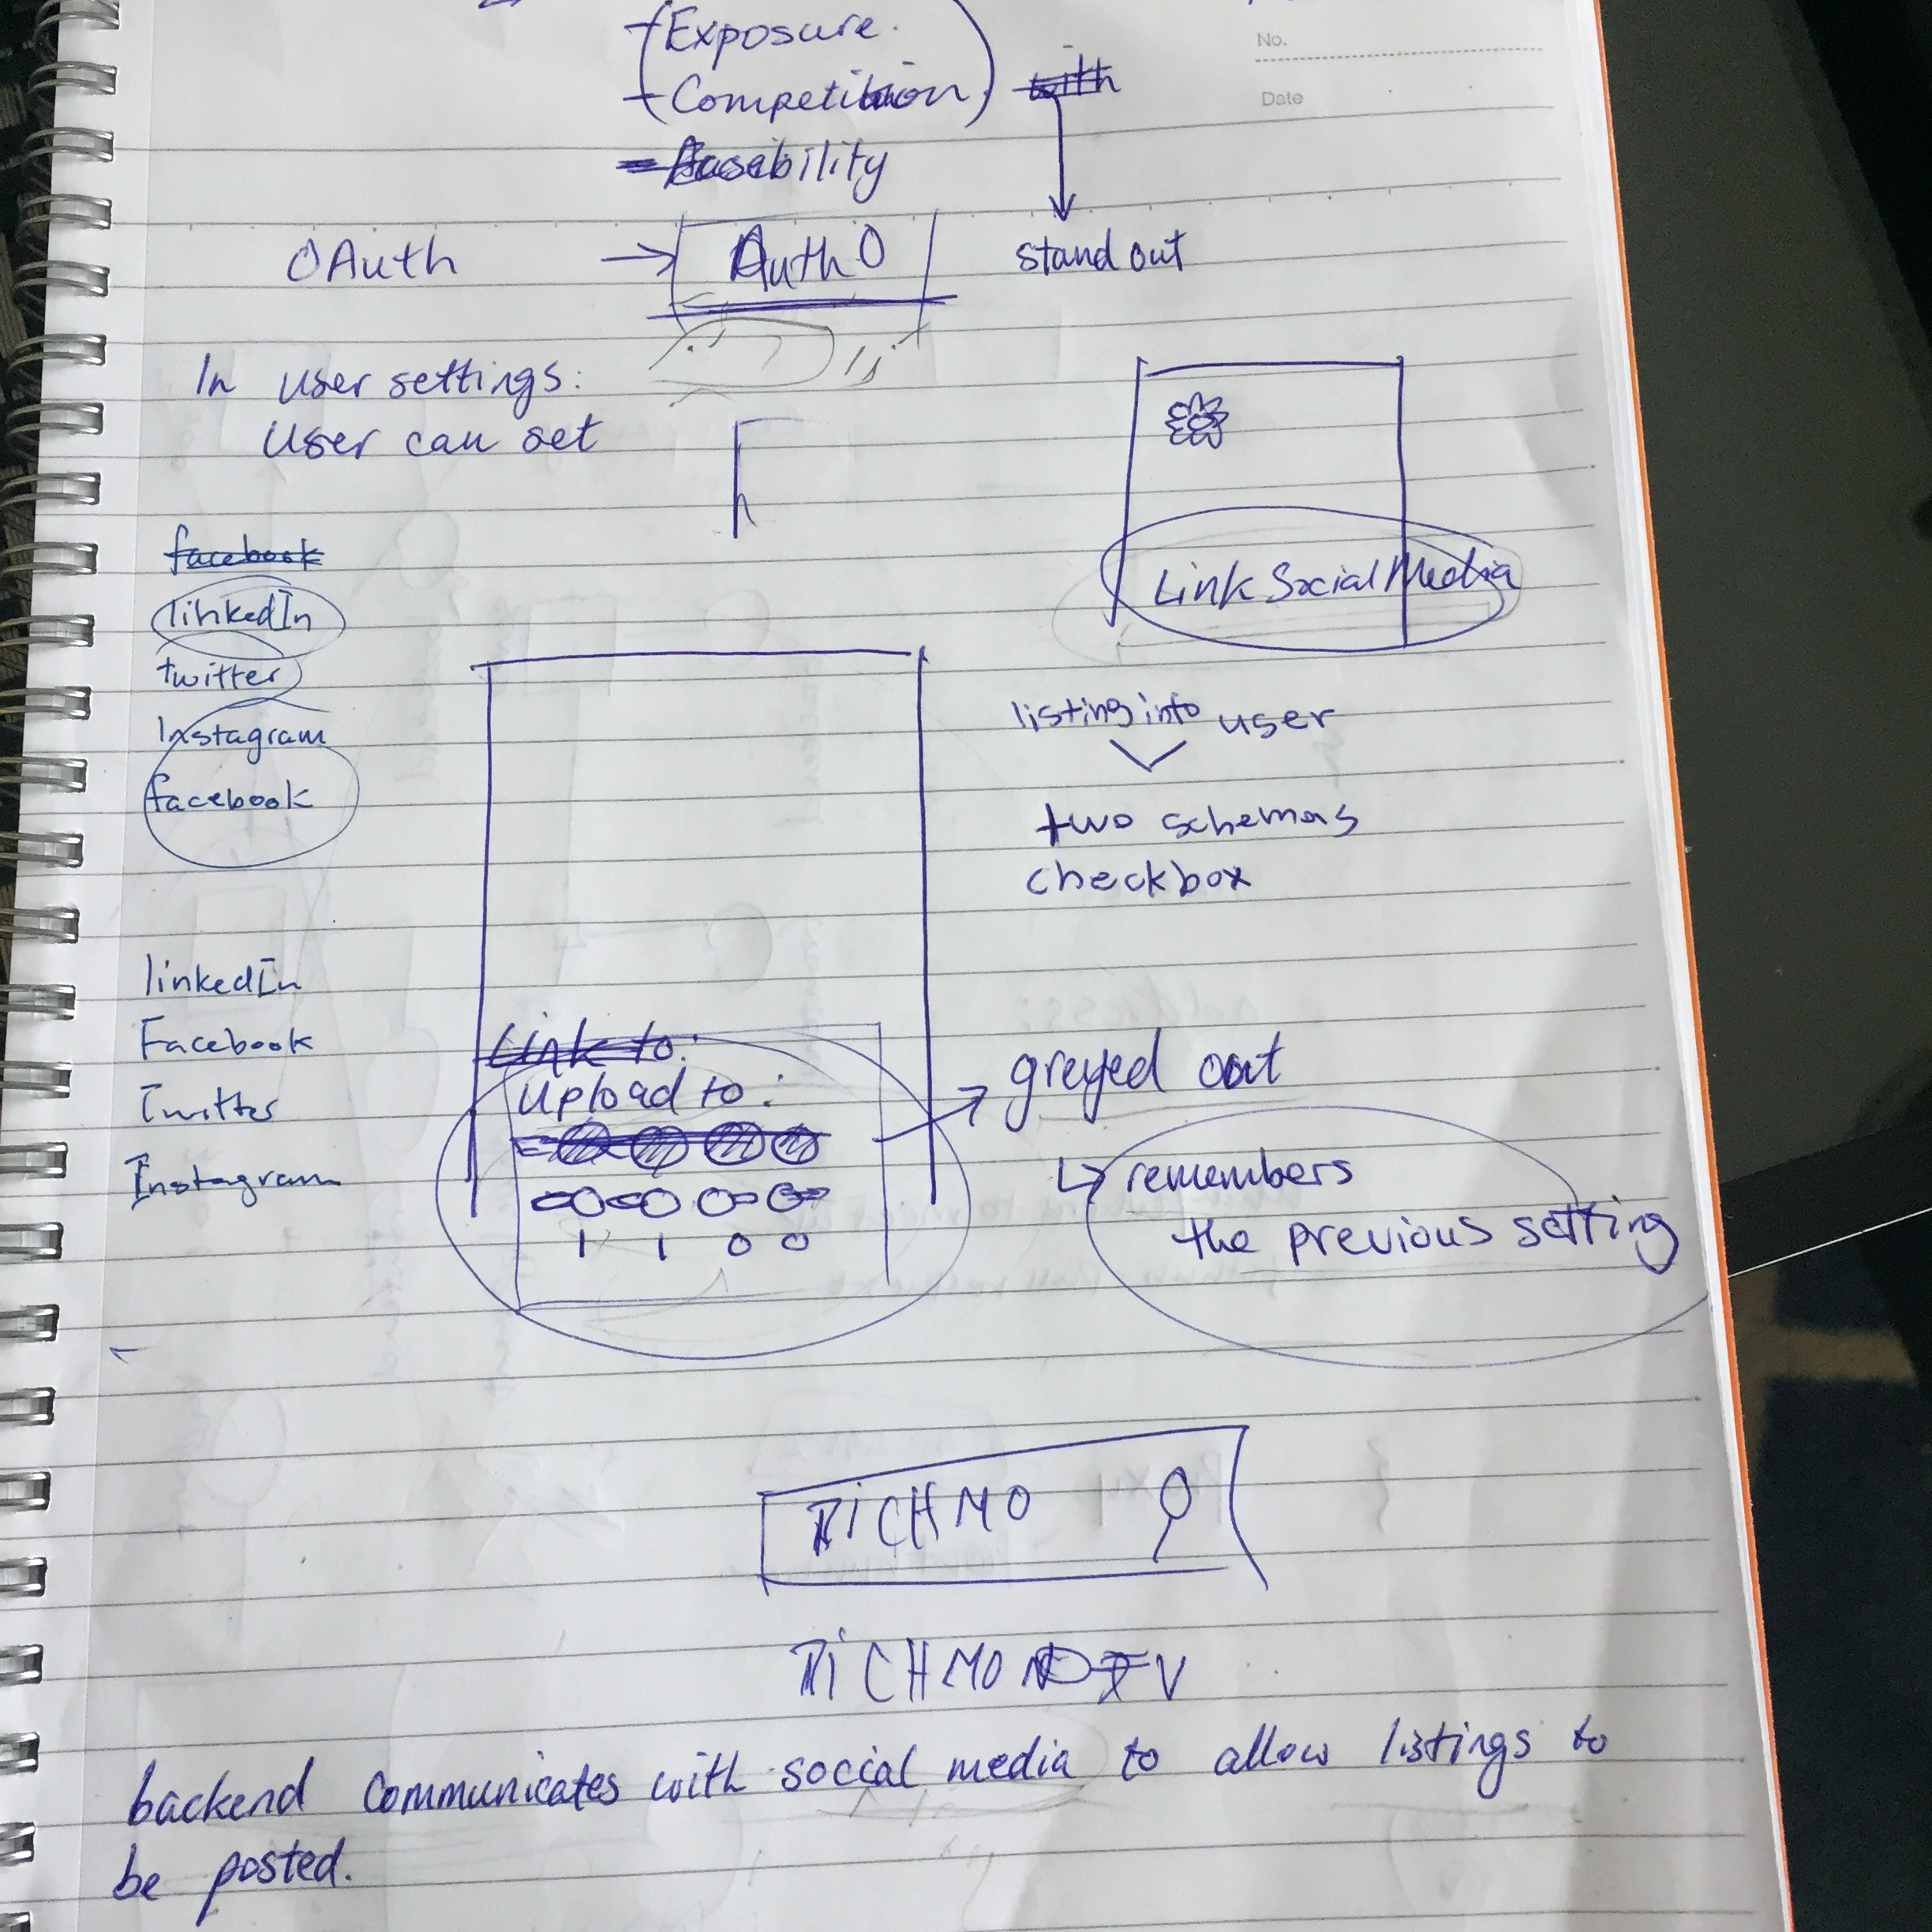 No.
Date
- Exposure.
- Competition
with
stand out
OAuth → Auth0
In user settings:
User can set
facebook
linkedIn
twitter
Instagram
facebook
Link Social Media
listing into user
two schemas
checkbox
linkedIn
Facebook
Twitter
Instagram
Link to:
Upload to:
1 1 0 0
greyed out
remembers
the previous setting
RiCHMO
backend communicates with social media to allow listings to
be posted.